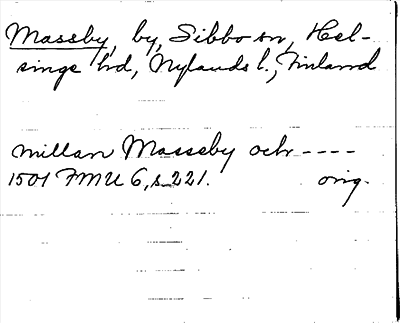 Massby, by, Sibbo sn, Hel-
singe hd, Nylands l., Finland
millan Massby och ----
1501 FMU 6, s. 221. orig.